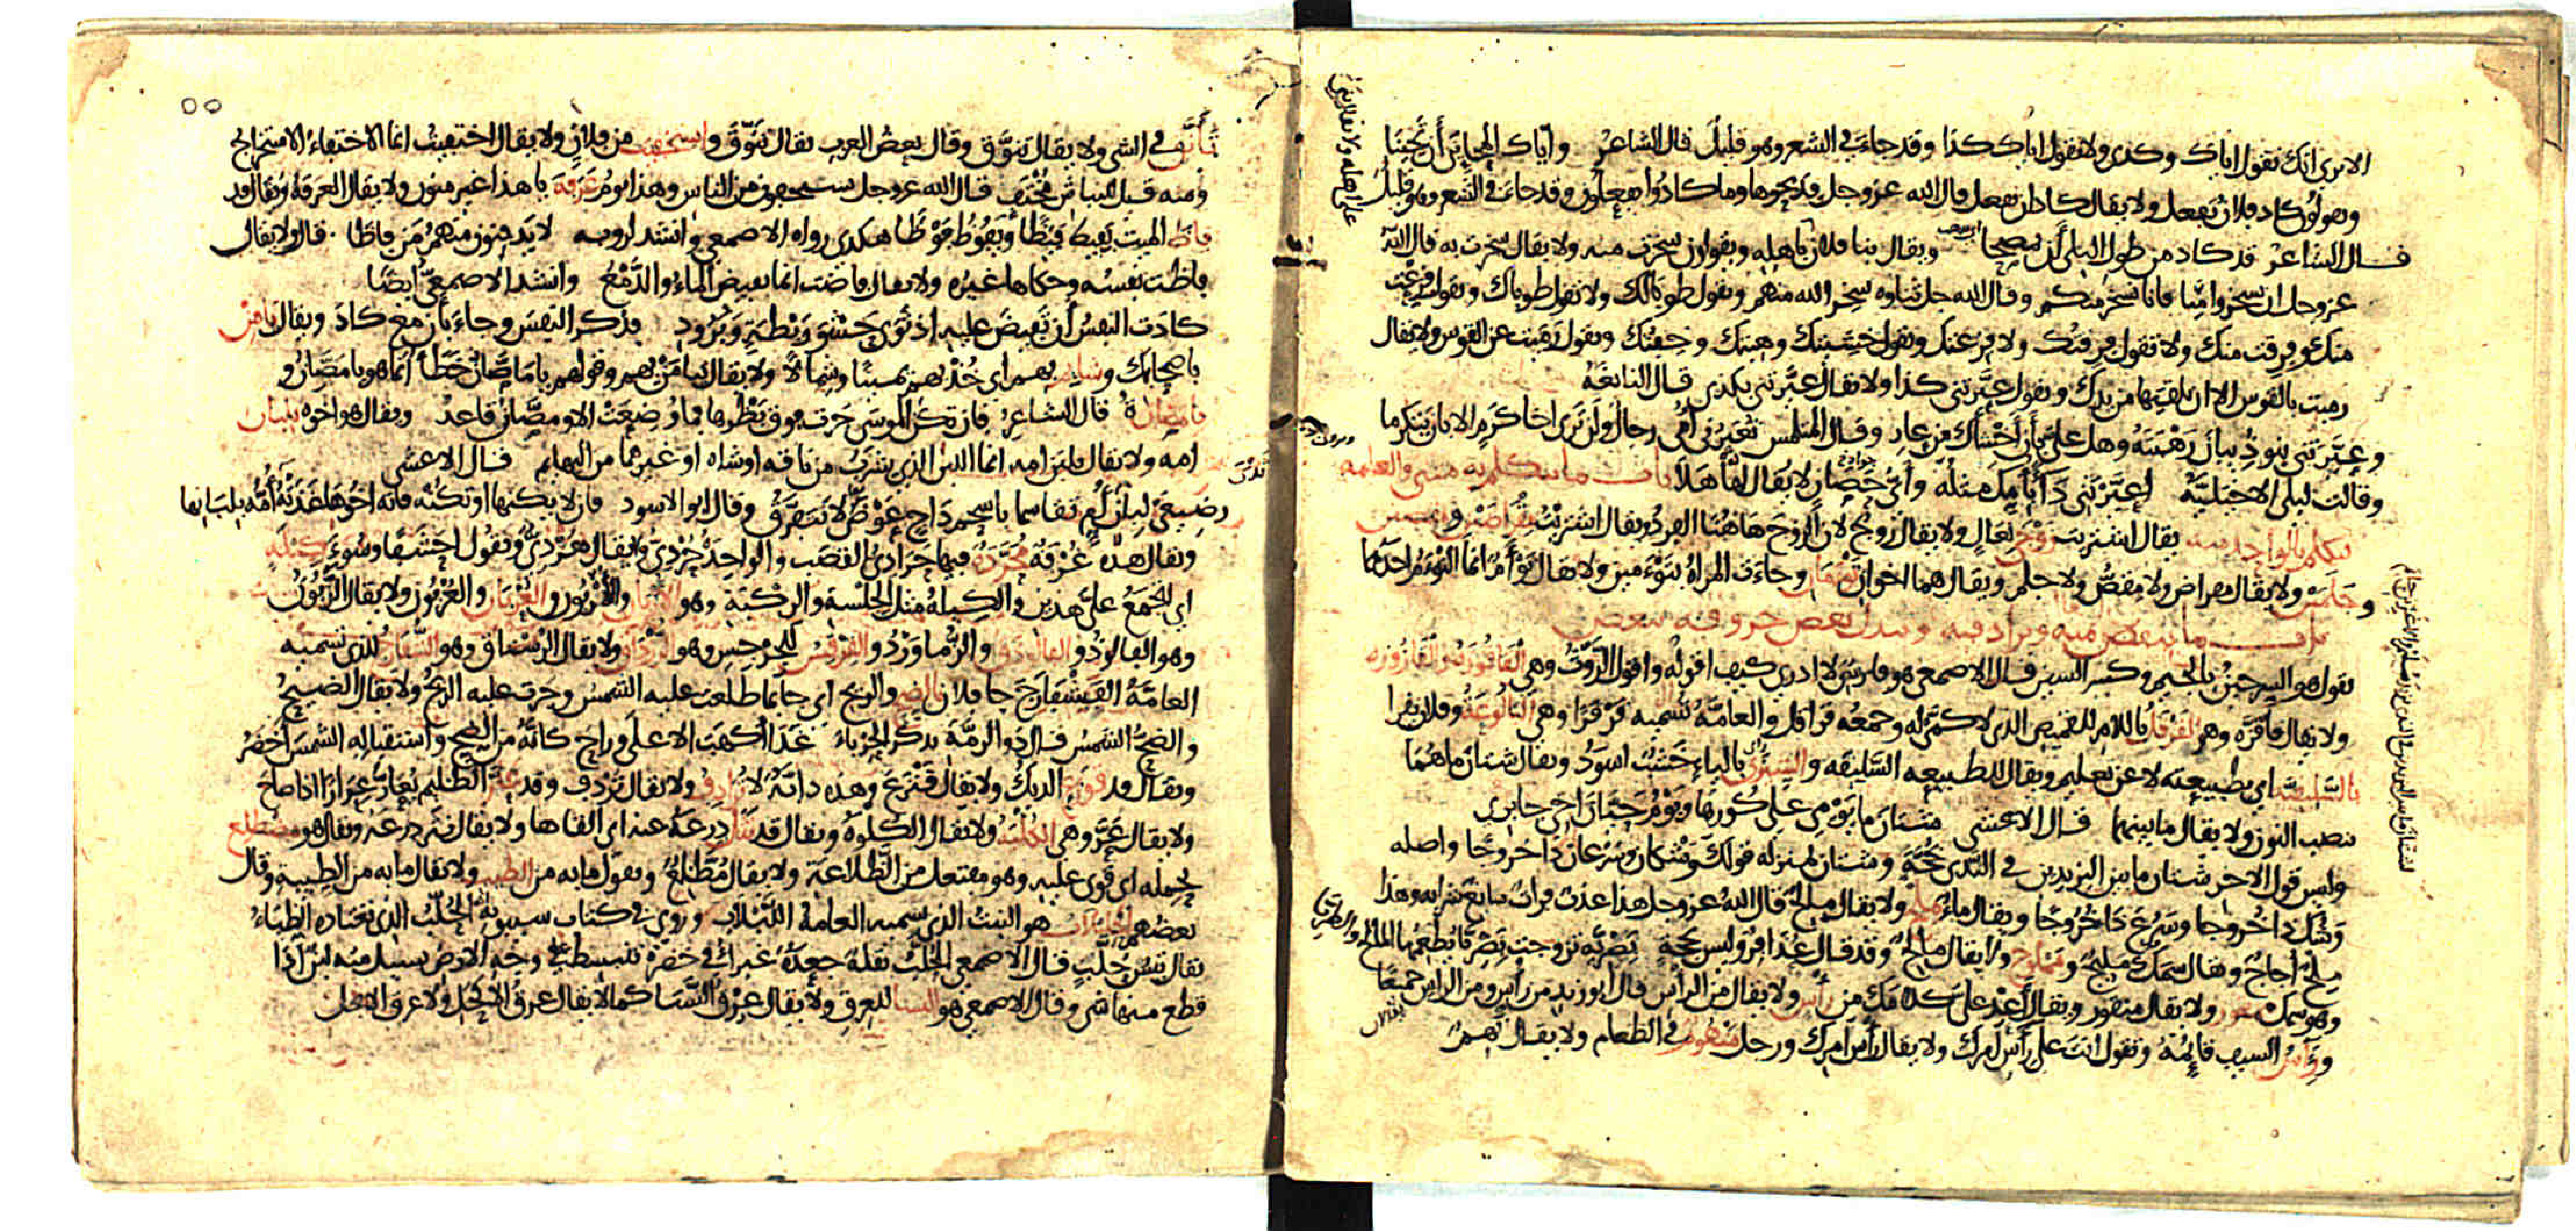 الا ترى انك تقول اياك وكذى ولا تقول اياك كذا وقد جاء في الشعر وهو قليل قال الشاعر واياك المحاين أن تحينا
ويقولون كاد فلان يفعل ولا يقال كاد ان يفعل قال الله عز وجل فذبحوها وما كادوا يفعلون وقد جاء في الشعر وهو قليل
قال الشاعر قد كاد من طول البلى أن يمصحا ويقال بنا فلان على اهله ويقولون سخرت منه ولا يقال سخرت به قال الله
عز وجل ان تسخروا منا فانا نسخر منكم وقال الله جل ثناؤه سخر الله منهم وتقول طوبا لك ولا تقل طوباك وتقول فزعت
منك وفرقت منك ولا تقول فرقتك ولا فزعتك وتقول خشيتك وهبتك وخفتك وتقول رميت عن القوس ولا يقال
رميت بالقوس الا ان تلقيها من يدك وتقول عيرتني كذا ولا يقال عيرتني بكذى قال النابغة
وعيرتني بنو ذبيان رهبته وهل علي بأن أخشاك من عار وقال المتلمس تعيرني أمي رجال ولن ترى اخا كرم الا بأن يتكرما
وقالت ليلى الاخيلية اعيرتني داء بأمك مثله وأي حصان لا يقال لها هلا باب ما يتكلم به مثنى والعامة
تتكلم بالواحد منه يقال اشتريت زوجي نعال ولا يقال زوج لان الزوج هاهنا الفرد ويقال اشتريت مقراضين ومقصين
وجلمين ولا يقال مقراض ولا مقص ولا جلم ويقال هما اخوان توءمان وجاءت المراة بتوءمين ولا يقال توءم انما التوءم احدهما
باب ما ينقص منه ويزاد فيه ويبدل بعض حروفه ببعض
تقول هو السرجين بالجيم وكسر السين قال الاصمعي هو فارسي لا ادري كيف اقوله واقول الروث وهي القاقوزة والقازوزة
ولا يقال قاقزة وهو القرقل باللام للقميص الذي لا كمي له وجمعه قراقل والعامة تسميه قرقرا وهي البالوعة وفلان يقرا
بالسليقية اي بطبيعته لا عن تعليم ويقال للطبيعة السليقة والشيزى بالياء خشب اسود ويقال شتان ما هما
بنصب النون ولا يقال ما بينهما قال الاعشى شتان ما يومي على كورها ويوم حيان اخي جابر
وليس قول الاخر شتان ما بين اليزيدين في الندى بحجة وشتان بمنزلة قولك وشكان وسرعان ذا خروجا واصله
وشك ذا خروجا وسرع ذا خروجا ويقال ماء ملح ولا يقال مالح قال الله عز وجل هذا عذب فرات سائغ شرابه وهذا
ملح أجاج ويقال سمك مليح ومملوح ولا يقال مالح وقد قال عذافر وليس بحجة بصرية تزوجت بصريا يطعمها المالح والطريا
وهو سمك ممقور ولا يقال منقور ويقال أعد علي كلامك من رأس ولا يقال من الرأس قال ابو زيد من رأس ومن الرأس جميعا
ورئاس السيف قائمه وتقول انت على رأس امرك ولا يقال رأس امرك ورجل منهوم في الطعام ولا يقال نهم
تأنق في الشي ولا يقال تنوق وقال بعض العرب يقال تنوق واستخفيت من فلان ولا يقال اختفيت انما الاختفاء الاستخراج
ومنه قيل للنباش مختف قال الله عز وجل يستخفون من الناس وهذا يوم عرفة يا هذا غير منون ولا يقال العرفة ويقال قد
فاظ الميت يفيظ فيظا ويفوظ فوظا هكذى رواه الاصمعي وانشد لروبة لا يدفنون منهم من فاظا قال ولا يقال
فاظت نفسه وحكاها غيره ولا يقال فاضت انما يفيض الماء والدمع وانشد الاصمعي ايضا
كادت النفس أن تفيض عليه اذ ثوى حشو ريطة وبرود فذكر النفس وجاء بأن مع كاد ويقال يامن
باصحابك وشائم بهم اي خذ بهم يمينا وشمالا ولا يقال تيامن بهم وقولهم يا ماصان خطأ انما هو يا مصان و
يا مصانة قال الشاعر فان تكن الموسى جرت فوق بظرها فما وضعت الا ومصان قاعد ويقال هو اخوه بلبان
امه ولا يقال بلبن امه انما اللبن الذي يشرب من ناقة او شاه او غيرهما من البهايم قال الاعشى
رضيعي لبان ثدي أم تقاسما باسحم داج عوض لا نتفرق وقال ابو الاسود فان لا يكنها او تكنه فانه اخوها غذته أمه بلبانها
ويقال هذه غرفة محردة فيها حرادي القصب والواحد حردي ولا يقال هردي وتقول احشفا وسوء كيلة
اي تجمع علي هذين والكيلة مثل الجلسة والركبة وهو الاربان والاربون والعربان والعربون ولا يقال الربون
وهو الفالوذ والفالوذق والزماورد والقرقس للجرجس وهو الرزداق ولا يقال الرستاق وهو الشفارج للذي تسميه
العامة الفيشفارج جا فلان بالضح والريح اي جا بما طلعت عليه الشمس وجرت عليه الريح ولا يقال الضيح
والضح الشمس قال ذو الرمة يذكر الحرباء غدا أكهب الاعلى وراح كانه من الضح واستقباله الشمس أخضر
ويقال قد قوزع الديك ولا يقال قنزع وهذه دابة لا ترادف ولا يقال تردف وقد عار الظليم يعار عرارا اذا صاح
ولا يقال عر وهي الكلية ولا يقال الكلوة ويقال قد نثل درعه عنه اي القاها ولا يقال نثر درعه ويقال هو مضطلع
بحمله اي قوي عليه وهو مفتعل من الضلاعة ولا يقال مطلع وتقول ما به من الطيب ولا يقال ما به من الطيبة وقال
بعضهم الحلبلاب هو النبت الذي تسميه العامة اللبلاب وروي في كتاب سيبويه انه الحلب الذي تعتاده الظباء
يقال تيس حلب قال الاصمعي الحلب بقلة جعدة غبراء في خضرة تنبسط على وجه الارض يسيل منه لبن اذا
قطع منها شي وقال الاصمعي هو النسا للعرق ولا يقال عرق النسا كما لا يقال عرق الاكحل ولا عرق الابجل